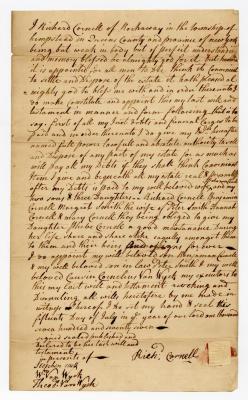 I Richard Cornell of Rockaway in the township of
hempstead in Queens County and province of new york
being but weak in body but of perfect understanding
and memory blessed be almighty god for it. But knowing
it is appointed for all men to die
to settle and Dispose of the estate it hath pleased al-
mighty god to bless me with and in order thereunto I
do make constitute and appoint this my last will and
testament in manner and form following, that is to
say: first all my Just Debts and funeral Charges to be
paid and in order thereunto I do give my Executors hereafter
named full power Lawfull and absolute authority to sell
and Dispose of any part of my estate for as much as
will pay my Debts as they shall think Convenient
Item I give and bequeath all my estate real & personal
after my Debts is paid to my well beloved wife and my
two sons & three Daughters Richard Cornell Benjamin
Cornell Margrat Smith the wife of Peter Smith Hannah
Cornell & Mary Cornell they being obliged to give my
Daughter Phebe Cornell a good maintenance During
her life share and share alike equally amongst them
to them and their heirs and assigns for ever
I do appoint my well beloved son Benjamin Cornell
& my well beloved son in law Peter Smith & my well
beloved Cousin Cornelius Van Wyck my executors to
this my last will and testament revoking and
Dunulling all wills heretofore by me made in
witness thereof I have set my hand & seal this
fifteenth Day of July in the year of our lord one thousand
seven hundred and seventy seven
signed sealed published and
Declared to be his last will and
testament
in presents of
Richd. Cornell
Stephen
Wm. V Wyck
Theods. Van Wyck